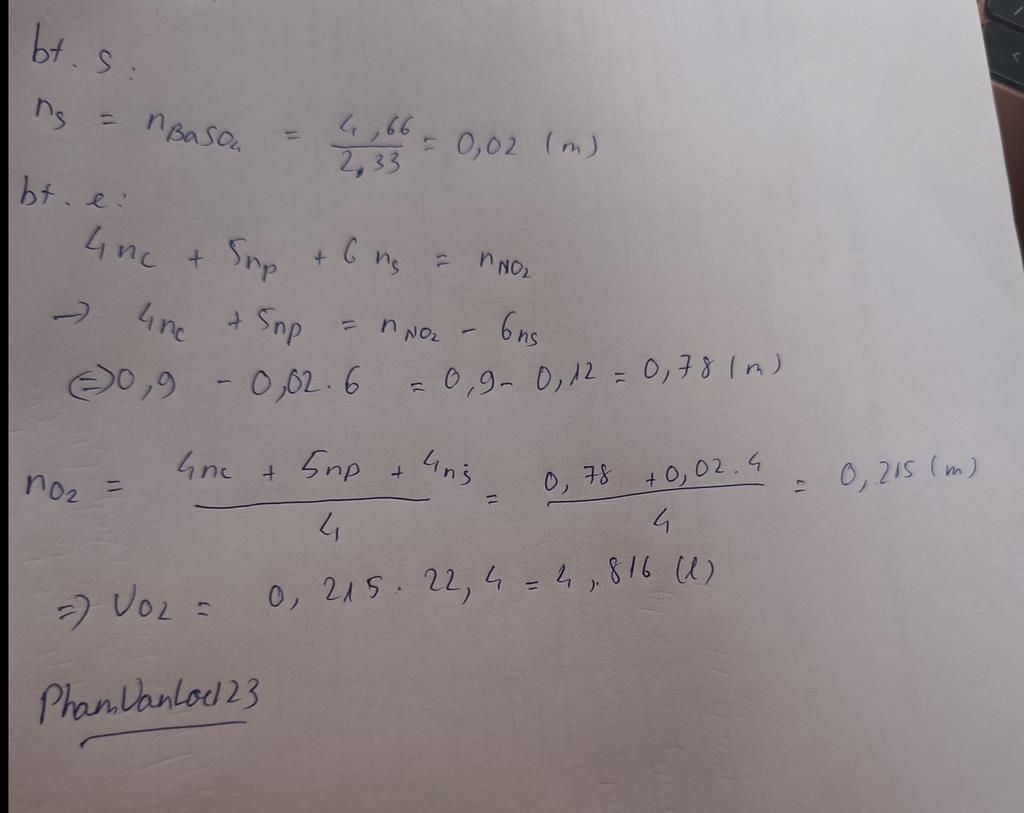 bt. S:
nS = nBaSO4 = 4,66/2,33 = 0,02 (m)
bt. e:
4nC + 5np + 6 nS = nNO2
→ 4nC + 5np = nNO2 - 6nS
⇔ 0,9 - 0,02.6 = 0,9 - 0,12 = 0,78 (m)
nO2 = (4nC + 5np + 4nS)/4 = (0,78 + 0,02.4)/4 = 0,215 (m)
⇒ VO2 = 0,215. 22,4 = 4,816 (l)
PhamVanLoc123